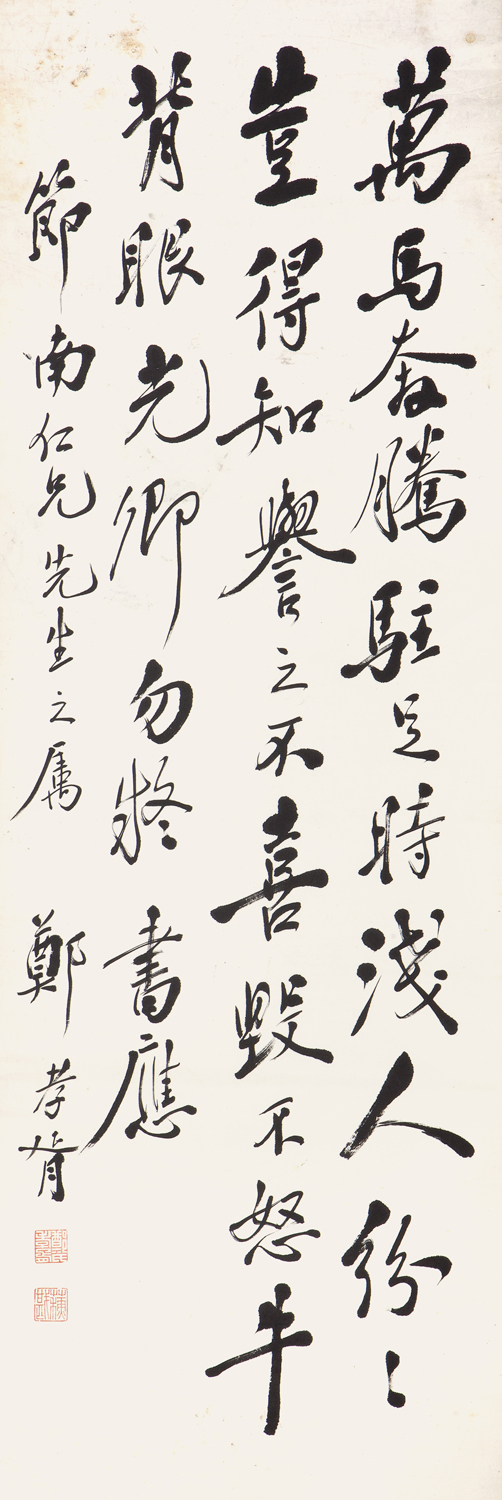 萬馬奔騰駐足時淺人紛〻
豈得知譽之不喜毀不怒牛
背眼光卿勿疑 書應
節南仁兄先生之屬 鄭孝胥